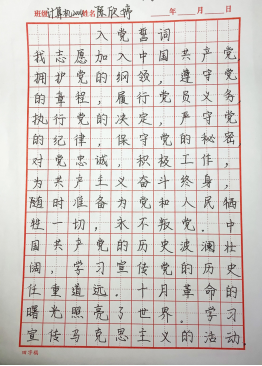 班级计算机 姓名陈欣婷 年 月 日
入党誓词
我志愿加入中国共产党
拥护党的纲领，遵守党
的章程，履行党员义务
执行党的决定，严守党
的纪律，保守党的秘密
对党忠诚，积极工作，
为共产主义奋斗终身，
随时准备为党和人民牺
牲一切，永不叛党。中
国共产党的历史波澜壮
阔，学习宣传党的历史
任重道远。十月革命的
曙光照亮了世界。学习
宣传马克思主义的活动